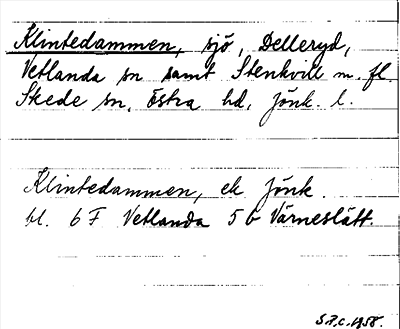 Klintedammen, sjö, Delleryd,
Vetlanda sn samt Stenkvill m. fl.
Skede sn, Östra hd, Jönk. l.
Klintedammen, ek Jönk.
bl. 6 F Vetlanda 5 b Värneslätt.
S.F.C. 1958.